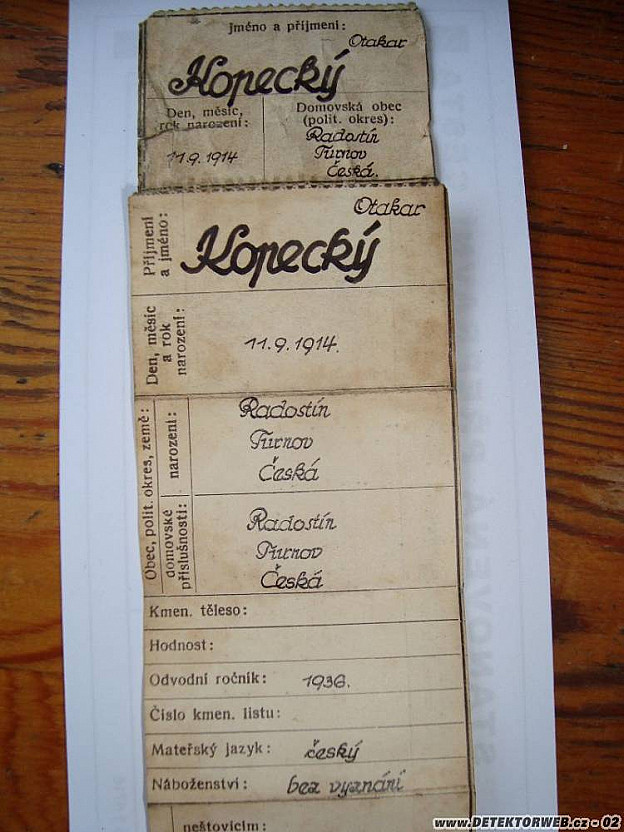 Jméno a příjmení:
Otakar
Kopecký
Den, měsíc,
rok narození:
11.9.1914
Domovská obec
(polit. okres):
Radostín
Turnov
Česká.
Příjmení
a jméno:
Otakar
Kopecký
Den, měsíc
a rok
narození:
11.9.1914.
Obec, polit. okres, země:
narození:
Radostín
Turnov
Česká
domovské
příslušnosti:
Radostín
Turnov
Česká
Kmen. těleso:
Hodnost:
Odvodní ročník: 1936.
Číslo kmen. listu:
Mateřský jazyk: český
Náboženství: bez vyznání
neštovicím:
www.DETEKTORWEB.cz - 02